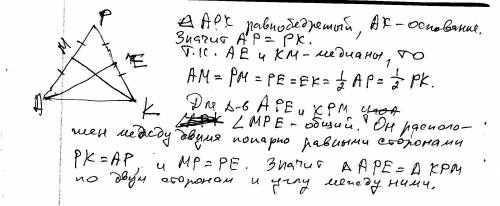 P
M
E
A
K
△ APK равнобедренный, AK - основание.
Значит AP = PK.
Т.к. AE и KM - медианы, то
AM = PM = PE = EK = 1/2 AP = 1/2 PK.
Для △-в APE и KPM
∠MPE - общий. Он располо-
жен между двумя попарно равными сторонами
PK = AP, и MP = PE. Значит △ APE = △ KPM
по двум сторонам и углу между ними.